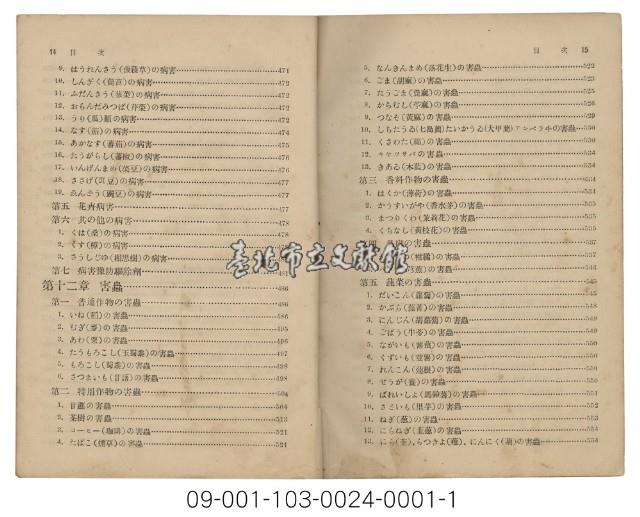 14 目次
9. はうれんさう(菠薐草)の病害 471
10. しんぎく(茼蒿)の病害 472
11. ふだんさう(莙菜)の病害 472
12. おらんだみつば(芹菜)の病害 472
13. うり(瓜)類の病害 472
14. なす(茄)の病害 474
15. あかなす(蕃茄)の病害
16. たうがらし(蕃椒)の病害
17. いんげんまめ(菜豆)の病害
18. ささげ(豇豆)の病害
19. ゑんどう(豌豆)の病害
第五 花卉病害
第六 其の他の病害 478
1. くは(桑)の病害
2. くす(樟)の病害
3. さうしじゆ(相思樹)の病害
第七 病害豫防驅除劑
第十二章 害蟲 486
第一 普通作物の害蟲 486
1. いね(稻)の害蟲 486
2. むぎ(麥)の害蟲 495
3. あわ(粟)の害蟲 496
4. たうもろこし(玉蜀黍)の害蟲 497
5. もろこし(蜀黍)の害蟲 498
6. さつまいも(甘藷)の害蟲 498
第二 特用作物の害蟲 504
1. 甘蔗の害蟲 504
2. 茶樹の害蟲 513
3. コーヒー(珈琲)の害蟲 521
4. たばこ(煙草)の害蟲 521
目次 15
5. なんきんまめ(落花生)の害蟲 522
6. ごま(胡麻)の害蟲 526
7. たうごま(蓖麻)の害蟲
8. からむし(苧麻)の害蟲 529
9. つなそ(黃麻)の害蟲 529
10. しちたうゐ(七島藺)たいかうゐ(大甲藺)アンペラヰの害蟲 530
11. くさわた(棉)の害蟲
12. の害蟲
13. きあゐ(木藍)の害蟲
第三 香料作物の害蟲
1. はくか(薄荷)の害蟲
2. かうすいがや(香水茅)の害蟲
3. まつりくわ(茉莉花)の害蟲
4. くちなし(黃枝花)の害蟲
の害蟲 537
臺北市立文獻館
第五 蔬菜の害蟲 545
1. だいこん(蘿蔔)の害蟲 545
2. かぶら(蕪菁)の害蟲
3. にんじん(胡蘿蔔)の害蟲
4. ごばう(牛蒡)の害蟲
5. ながいも(薯蕷)の害蟲
6. くずいも(豆薯)の害蟲
7. れんこん(蓮根)の害蟲
8. せうが(薑)の害蟲
9. ばれいしよ(馬鈴薯)の害蟲
10. さといも(里芋)の害蟲 552
11. ねぎ(葱)の害蟲 553
12. にらねぎ(韮葱)の害蟲 554
13. にら(韮)、らつきよ(薤)、にんにく(葫)の害蟲 554
09-001-103-0024-0001-1